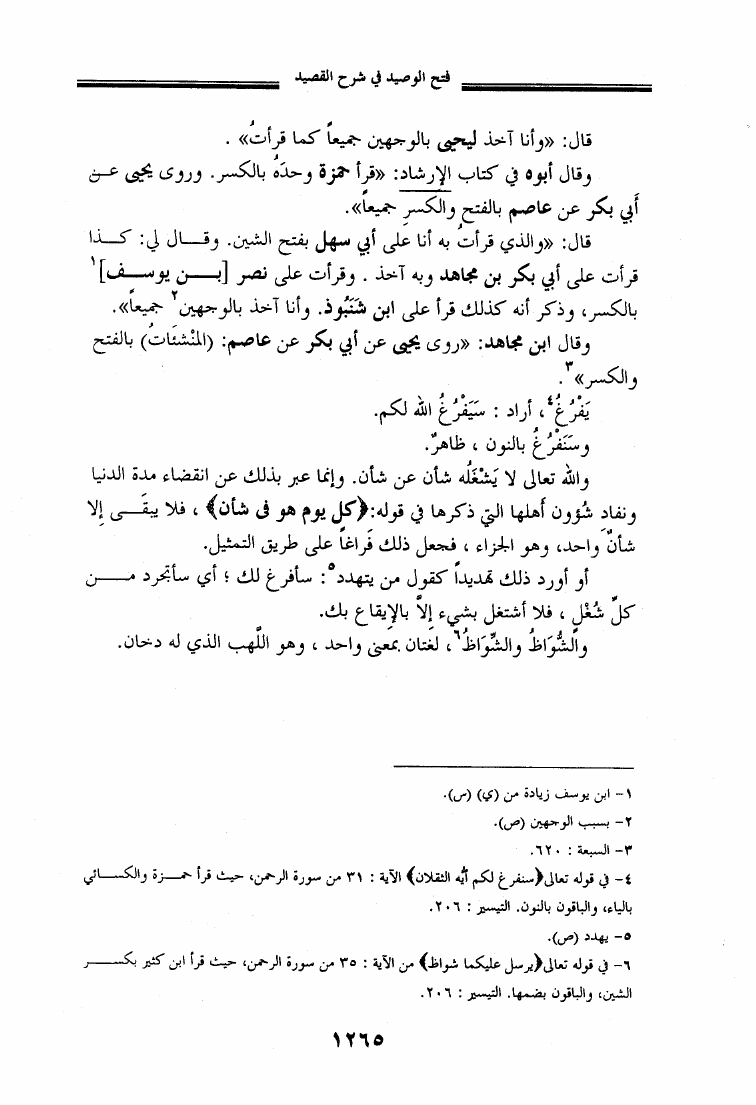 فتح الوصيد في شرح القصيد
قال: «وأنا آخذ ليحيى بالوجهين جميعاً كما قرأتُ» .
وقال أبوه في كتاب الإرشاد: «قرأ حمزة وحدَهُ بالكسر. وروى يحيى عـن
أبي بكر عن عاصم بالفتح والكسرِ جميعاً».
قال: «والذي قرأتُ به أنا على أبي سهل بفتح الشين. وقـــال لي: كـــذا
قرأت على أبي بكر بن مجاهد وبه آخذ . وقرأت على نصر [بـــن يوســـف]١
بالكسر، وذكر أنه كذلك قرأ على ابن شَنَبُوذ. وأنا آخذ بالوجهين٢ جميعاً».
وقال ابن مجاهد: «روى يحيى عن أبي بكر عن عاصم: (المنْشئَاتُ) بالفتح
والكسر»٣.
يَفْرُغُ٤، أراد : سَيَفْرُغُ الله لكم.
وسَنَفْرُغُ بالنون ، ظاهرٌ.
والله تعالى لا يَشْغَلُه شأن عن شأن. وإنما عبر بذلك عن انقضاء مدة الدنيا
ونفاد شُؤون أهلها التي ذكرها في قوله:﴿كل يوم هو فى شأن﴾ ، فلا يبقَـــى إلا
شأنٌ واحد، وهو الجزاء ، فجعل ذلك فَراغاً على طريق التمثيل.
أو أورد ذلك تهديداً كقول من يتهدد٥: سأفرغ لك ؛ أي سأتجرد مـــن
كلِّ شُغْلٍ ، فلا أشتغل بشيء إلاَّ بالإيقاع بك.
والشُّوَاظُ والشِّوَاظُ٦، لغتان بمعنى واحد ، وهو اللَّهب الذي له دخان.
١- ابن يوسف زيادة من (ي) (س).
٢- بسبب الوجهين (ص).
٣- السبعة : ٦٢٠.
٤- في قوله تعالى﴿سنفرغ لكم أيُّه الثقلان﴾ الآية : ٣١ من سورة الرحمن، حيث قرأ حمـــزة والكســـائي
بالياء، والباقون بالنون. التيسير : ٢٠٦.
٥- يهدد (ص).
٦- في قوله تعالى﴿يرسل عليكما شواظ﴾ من الآية : ٣٥ من سورة الرحمن، حيث قرأ ابن كثير بكســـر
الشين، والباقون بضمها. التيسير : ٢٠٦.
١٢٦٥